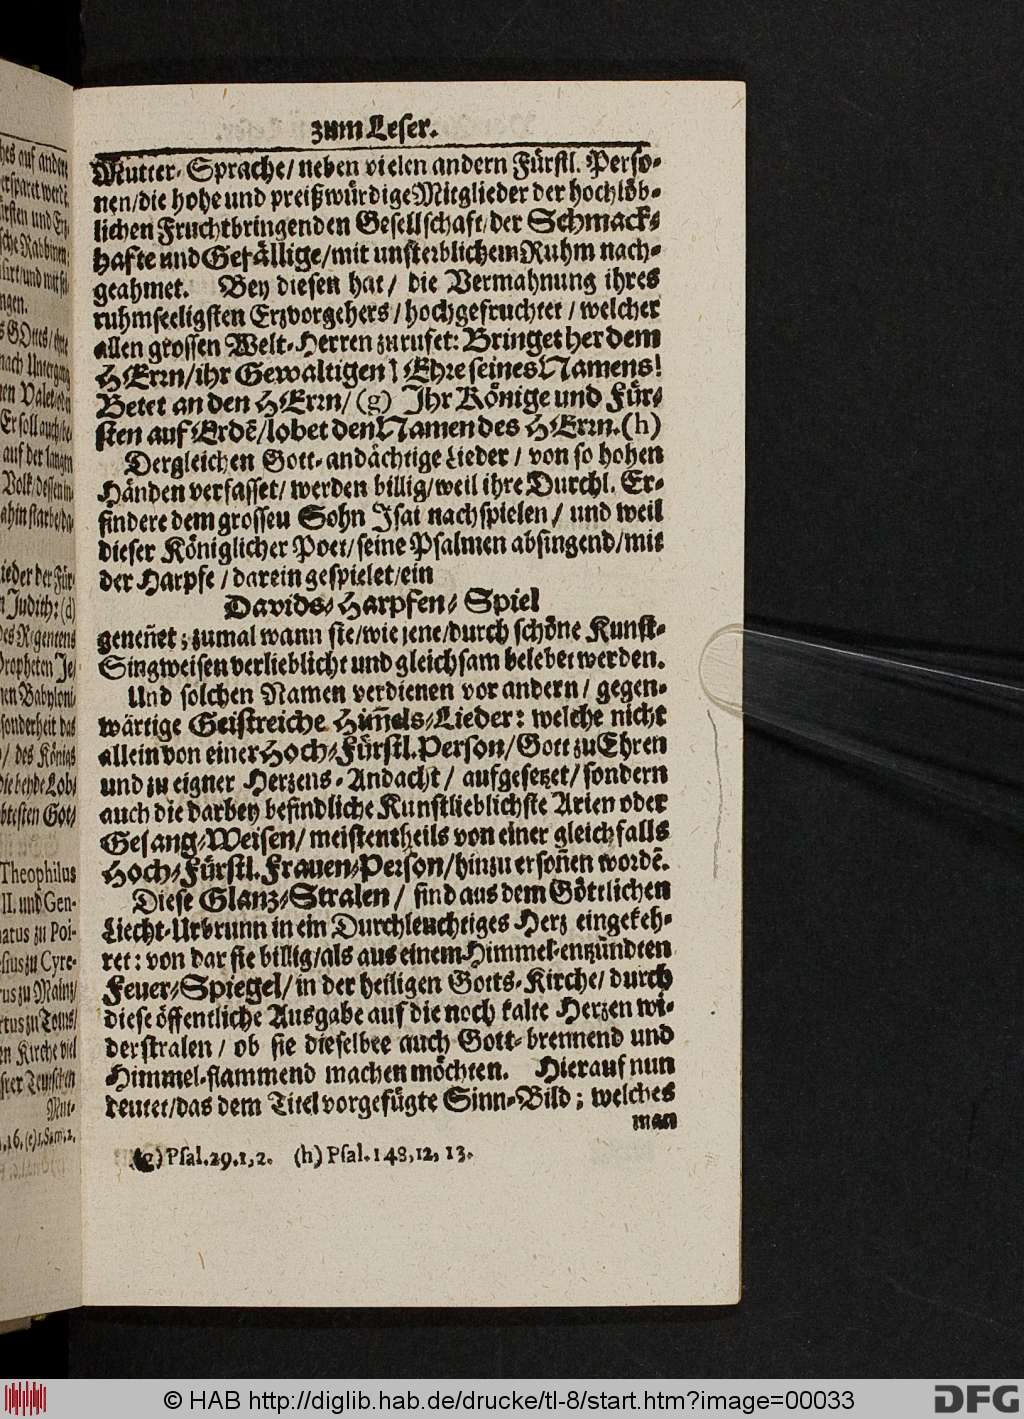 zum Leser.
Mutter-Sprache/ neben vielen andern Fürstl. Perso-
nen/die hohe und preißwürdige Mitglieder der hochlöb-
lichen Fruchtbringenden Gesellschaft/der Schmack-
hafte und Gefällige/mit unsterblichem Ruhm nach-
geahmet. Bey diesen hat/ die Vermahnung ihres
ruhmseeligsten Erzvorgehers/hochgefruchtet/welcher
allen grossen Welt-Herren zurufet: Bringet her dem
HErrn/ihr Gewaltigen! Ehre seines Namens!
Betet an den HErrn/(g) Ihr Könige und Für-
sten auf Erdē/lobet den Namen des HErrn.(h)
Dergleichen Gott-andächtige Lieder/ von so hohen
Händen verfasset/ werden billig/weil ihre Durchl. Er-
findere dem grosseu Sohn Isai nachspielen/ und weil
dieser Königlicher Poet/seine Psalmen absingend/mit
der Harpfe/darein gespielet/ein
Davids-Harpfen-Spiel
geneñet; zumal wann sie/wie jene/durch schöne Kunst-
Singweisen verlieblicht und gleichsam belebet werden.
Und solchen Namen verdienen vor andern/ gegen-
wärtige Geistreiche Him̃els-Lieder: welche nicht
allein von einer Hoch-Fürstl. Person/Gott zu Ehren
und zu eigner Herzens-Andacht/ aufgesetzet/sondern
auch die darbey befindliche Kunstlieblichste Arien oder
Gesang-Weisen/ meistentheils von einer gleichfalls
Hoch-Fürstl. Frauen-Person/hinzu ersoñen wordē.
Diese Glanz-Stralen/ sind aus dem Göttlichen
Liecht-Urbrunn in ein Durchleuchtiges Herz eingekeh-
ret: von dar sie billig/als aus einem Himmel-enzündten
Feuer-Spiegel/in der heiligen Gotts-Kirche/durch
diese öffentliche Ausgabe auf die noch kalte Herzen wi-
derstralen/ ob sie dieselbee auch Gott-brennend und
Himmel-flammend machen möchten. Hierauf nun
deutet/das dem Titel vorgefügte Sinn-Bild; welches
man
(g) Psal.29.1,2. (h) Psal.148,12,13.
© HAB http://diglib.hab.de/drucke/tl-8/start.htm?image=00033
DFG